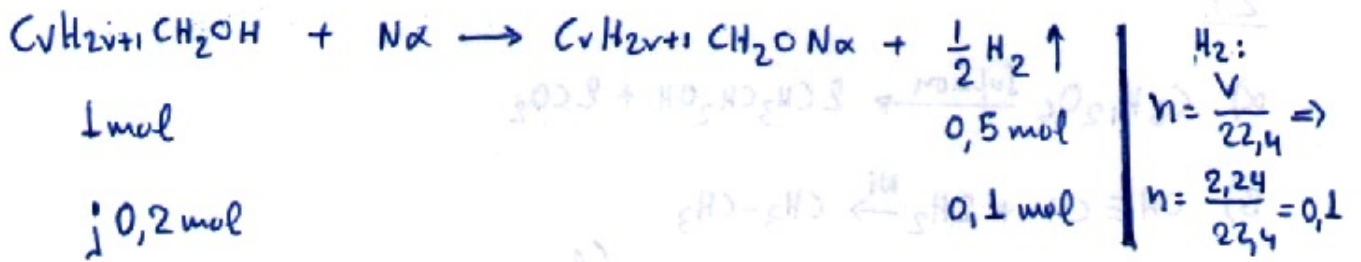 CνH2ν+1 CH2OH + Nα → CνH2ν+1 CH2O Nα + 1/2 H2 ↑
1mol 0,5 mol
; 0,2 mol 0,1 mol
H2:
n = V/22,4 =>
n = 2,24/22,4 = 0,1